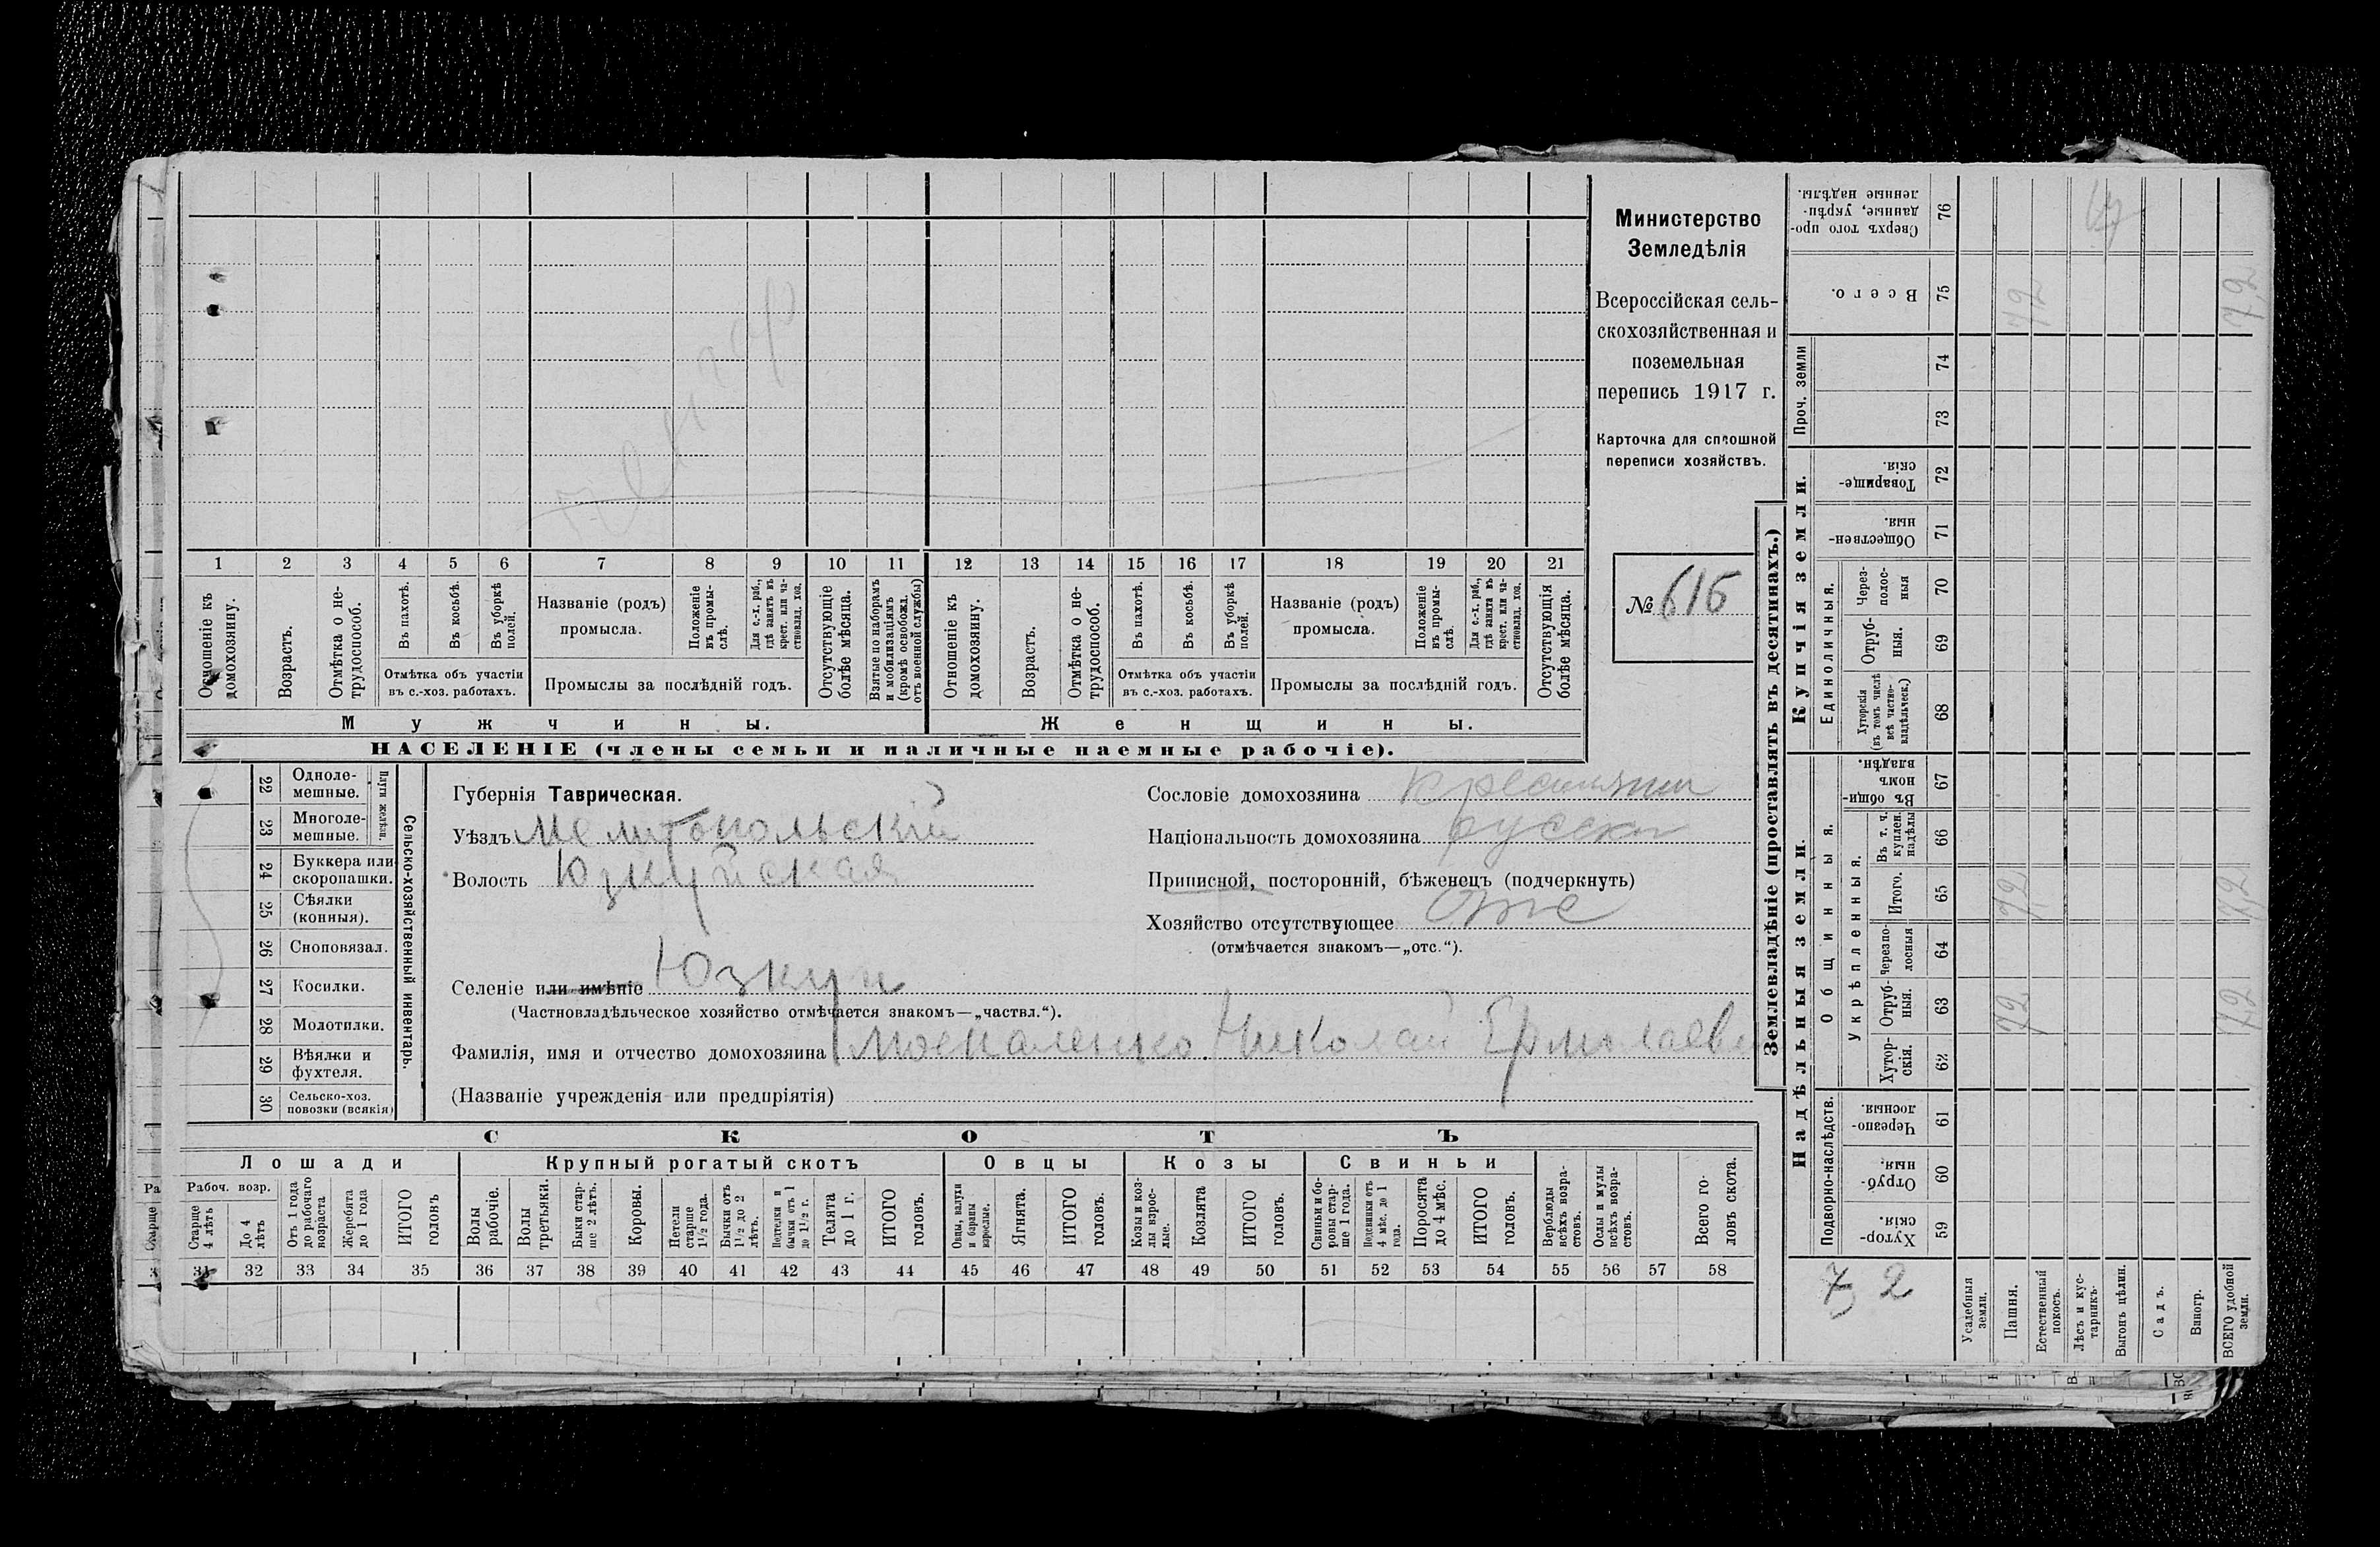 Министерство
Земледѣлія
Всероссійская сель-
скохозяйственная и
поземельная
перепись 1917 г.
Карточка для сплошной
переписи хозяйствъ.
№ 616
1 2 3 4 5 6 7 8 9 10 11 12 13 14 15 16 17 18 19 20 21
Отношеніе къ домохозяину.
Возрастъ.
Отмѣтка о не-трудоспособ.
Въ пахотѣ.
Въ косьбѣ.
Въ уборкѣ полей.
Отмѣтка объ участіи
въ с.-хоз. работахъ.
Названіе (родъ)
промысла.
Положеніе въ промы-слѣ.
Для с.-х. раб., гдѣ занятъ въ крест. или ча-стновлад. хоз.
Промыслы за послѣдній годъ.
Отсутствующіе болѣе мѣсяца.
Взятые по наборамъ и мобилизаціямъ (кромѣ освобожд. отъ военной службы)
Отношеніе къ домохозяину.
Возрастъ.
Отмѣтка о не-трудоспособ.
Въ пахотѣ.
Въ косьбѣ.
Въ уборкѣ полей.
Отмѣтка объ участіи
въ с.-хоз. работахъ.
Названіе (родъ)
промысла.
Положеніе въ промы-слѣ.
Для с.-х. раб., гдѣ занята въ крест. или ча-стновлад. хоз.
Промыслы за послѣдній годъ.
Отсутствующія болѣе мѣсяца.
Мужчины.
Женщины.
НАСЕЛЕНІЕ (члены семьи и наличные наемные рабочіе).
22 Одноле-мешные.
23 Многоле-мешные.
Плуги желѣзн.
24 Буккера или скоропашки.
25 Сѣялки (конныя).
26 Сноповязал.
27 Косилки.
28 Молотилки.
29 Вѣялки и фухтеля.
30 Сельско-хоз. повозки (всякія)
Сельско-хозяйственный инвентарь.
Губернія Таврическая.
Уѣздъ Мелитопольскій
Волость Юзкуйская
Селеніе или имѣніе Юзкуи
(Частновладѣльческое хозяйство отмѣчается знакомъ—„частвл.“).
Фамилія, имя и отчество домохозяина Москаленко Николай Ермолаеви
(Названіе учрежденія или предпріятія)
Сословіе домохозяина крестьянин
Національность домохозяина русский
Приписной, посторонній, бѣженецъ (подчеркнуть)
Хозяйство отсутствующее Отс
(отмѣчается знакомъ—„отс.“).
СКОТЪ
Лошади
Крупный рогатый скотъ
Овцы
Козы
Свиньи
Рабоч. возр.
Старше 4 лѣтъ
До 4 лѣтъ
Отъ 1 года до рабочаго возраста
Жеребята до 1 года
ИТОГО головъ
Волы рабочіе.
Волы третьяки.
Быки стар-ше 2 лѣтъ.
Коровы.
Нетели старше 1½ года.
Бычки отъ 1½ до 2 лѣтъ.
Подтелки и бычки отъ 1 до 1½ г.
Телята до 1 г.
ИТОГО головъ.
Овцы, валухи и бараны взрослые.
Ягнята.
ИТОГО головъ.
Козы и коз-лы взрос-лые.
Козлята
ИТОГО головъ.
Свиньи и бо-ровы стар-ше 1 года.
Подсвинки отъ 4 мѣс. до 1 года.
Поросята до 4 мѣс.
ИТОГО головъ.
Верблюды всѣхъ возра-стовъ.
Ослы и мулы всѣхъ возра-стовъ.
Всего го-ловъ скота.
31 32 33 34 35 36 37 38 39 40 41 42 43 44 45 46 47 48 49 50 51 52 53 54 55 56 57 58
Землевладѣніе (проставлять въ десятинахъ.)
Сверхъ того про-данные, укрѣп-ленные надѣлы. 76
Всего. 75 72 7,2
Проч. земли 74
73
Купчія земли.
Товарище-скія. 72
Обществен-ныя. 71
Единоличныя.
Через-полос-ныя 70
Отруб-ныя. 69
Хуторскія (въ томъ числѣ всѣ частно-владѣльческ.) 68
Надѣльныя земли.
Общинныя.
Въ общи-номъ владѣн. 67
Укрѣпленныя.
Въ т. ч. куплен. надѣлы 66
Итого. 65 7,2 7,2
Черезпо-лосныя 64
Отруб-ныя. 63 72 7,2
Хутор-скія. 62
Подворно-наслѣдств.
Черезпо-лосныя. 61
Отруб-ныя. 60
Хутор-скія. 59
7,2
Усадебныя земли.
Пашня.
Естественный покосъ.
Лѣсъ и кус-тарникъ.
Выгонъ цѣлин.
Садъ.
Виногр.
ВСЕГО удобной земли.